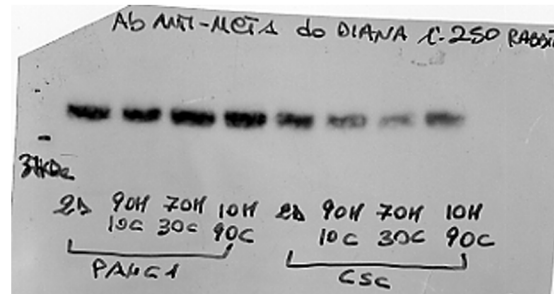 Ab ANTI-MCT1 do DIANA 1:250 RABBIT
37KDa
2D 90H 70H 10H 2D 90H 70H 10H
10C 30C 90C 10C 30C 90C
PANC1 CSC